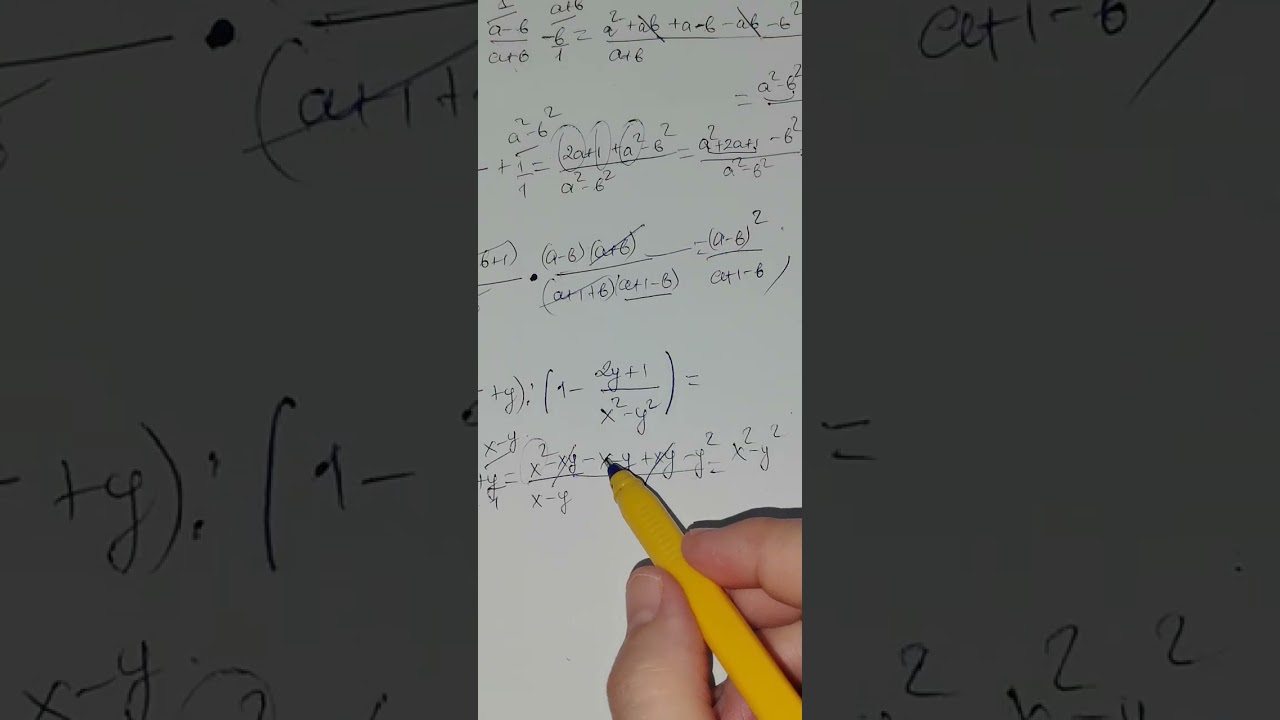 1/(a-b)/(a+b) (a+b)/-b/1 = (a²+ab+a-b-ab-b²)/(a+b)
= a²-b²
+ (a²-b²)/1/1 = (2a+1+a²-b²)/(a²-b²) = (a²+2a+1-b²)/(a²-b²)
b+1) • (a-b)(a+b)/((a+1+b)(a+1-b)) = (a-b)²/(a+1-b)
+y):(1-(2y+1)/(x²-y²))=
x-y
+y/1 = (x²-xy-x-y+xy-y²)/(x-y) = x²-y²